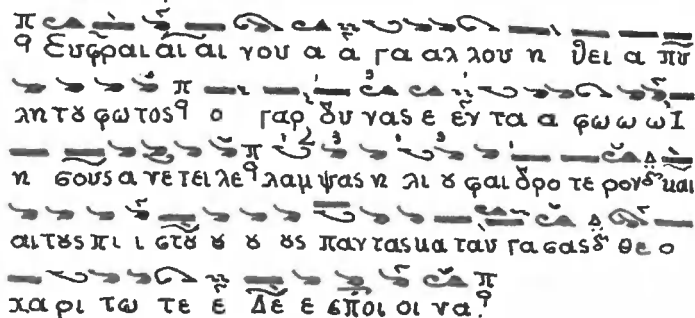 π
q Ευφραι αι αι νου α α γα αλ λου η θει α πυ
λη τȣ φω τος q ο γαρ δυ νας ε εν τα α φω ω ω Ι
η σους α νε τει λε q λαμ ψας η λι ȣ φαι δρο τε ρον δ και
αι τους πι ι στȣ ȣ ȣ ȣς παντας κα ταυ γα σας δ θε ο
χα ρι τω τε ε Δε ε σποι οι να q